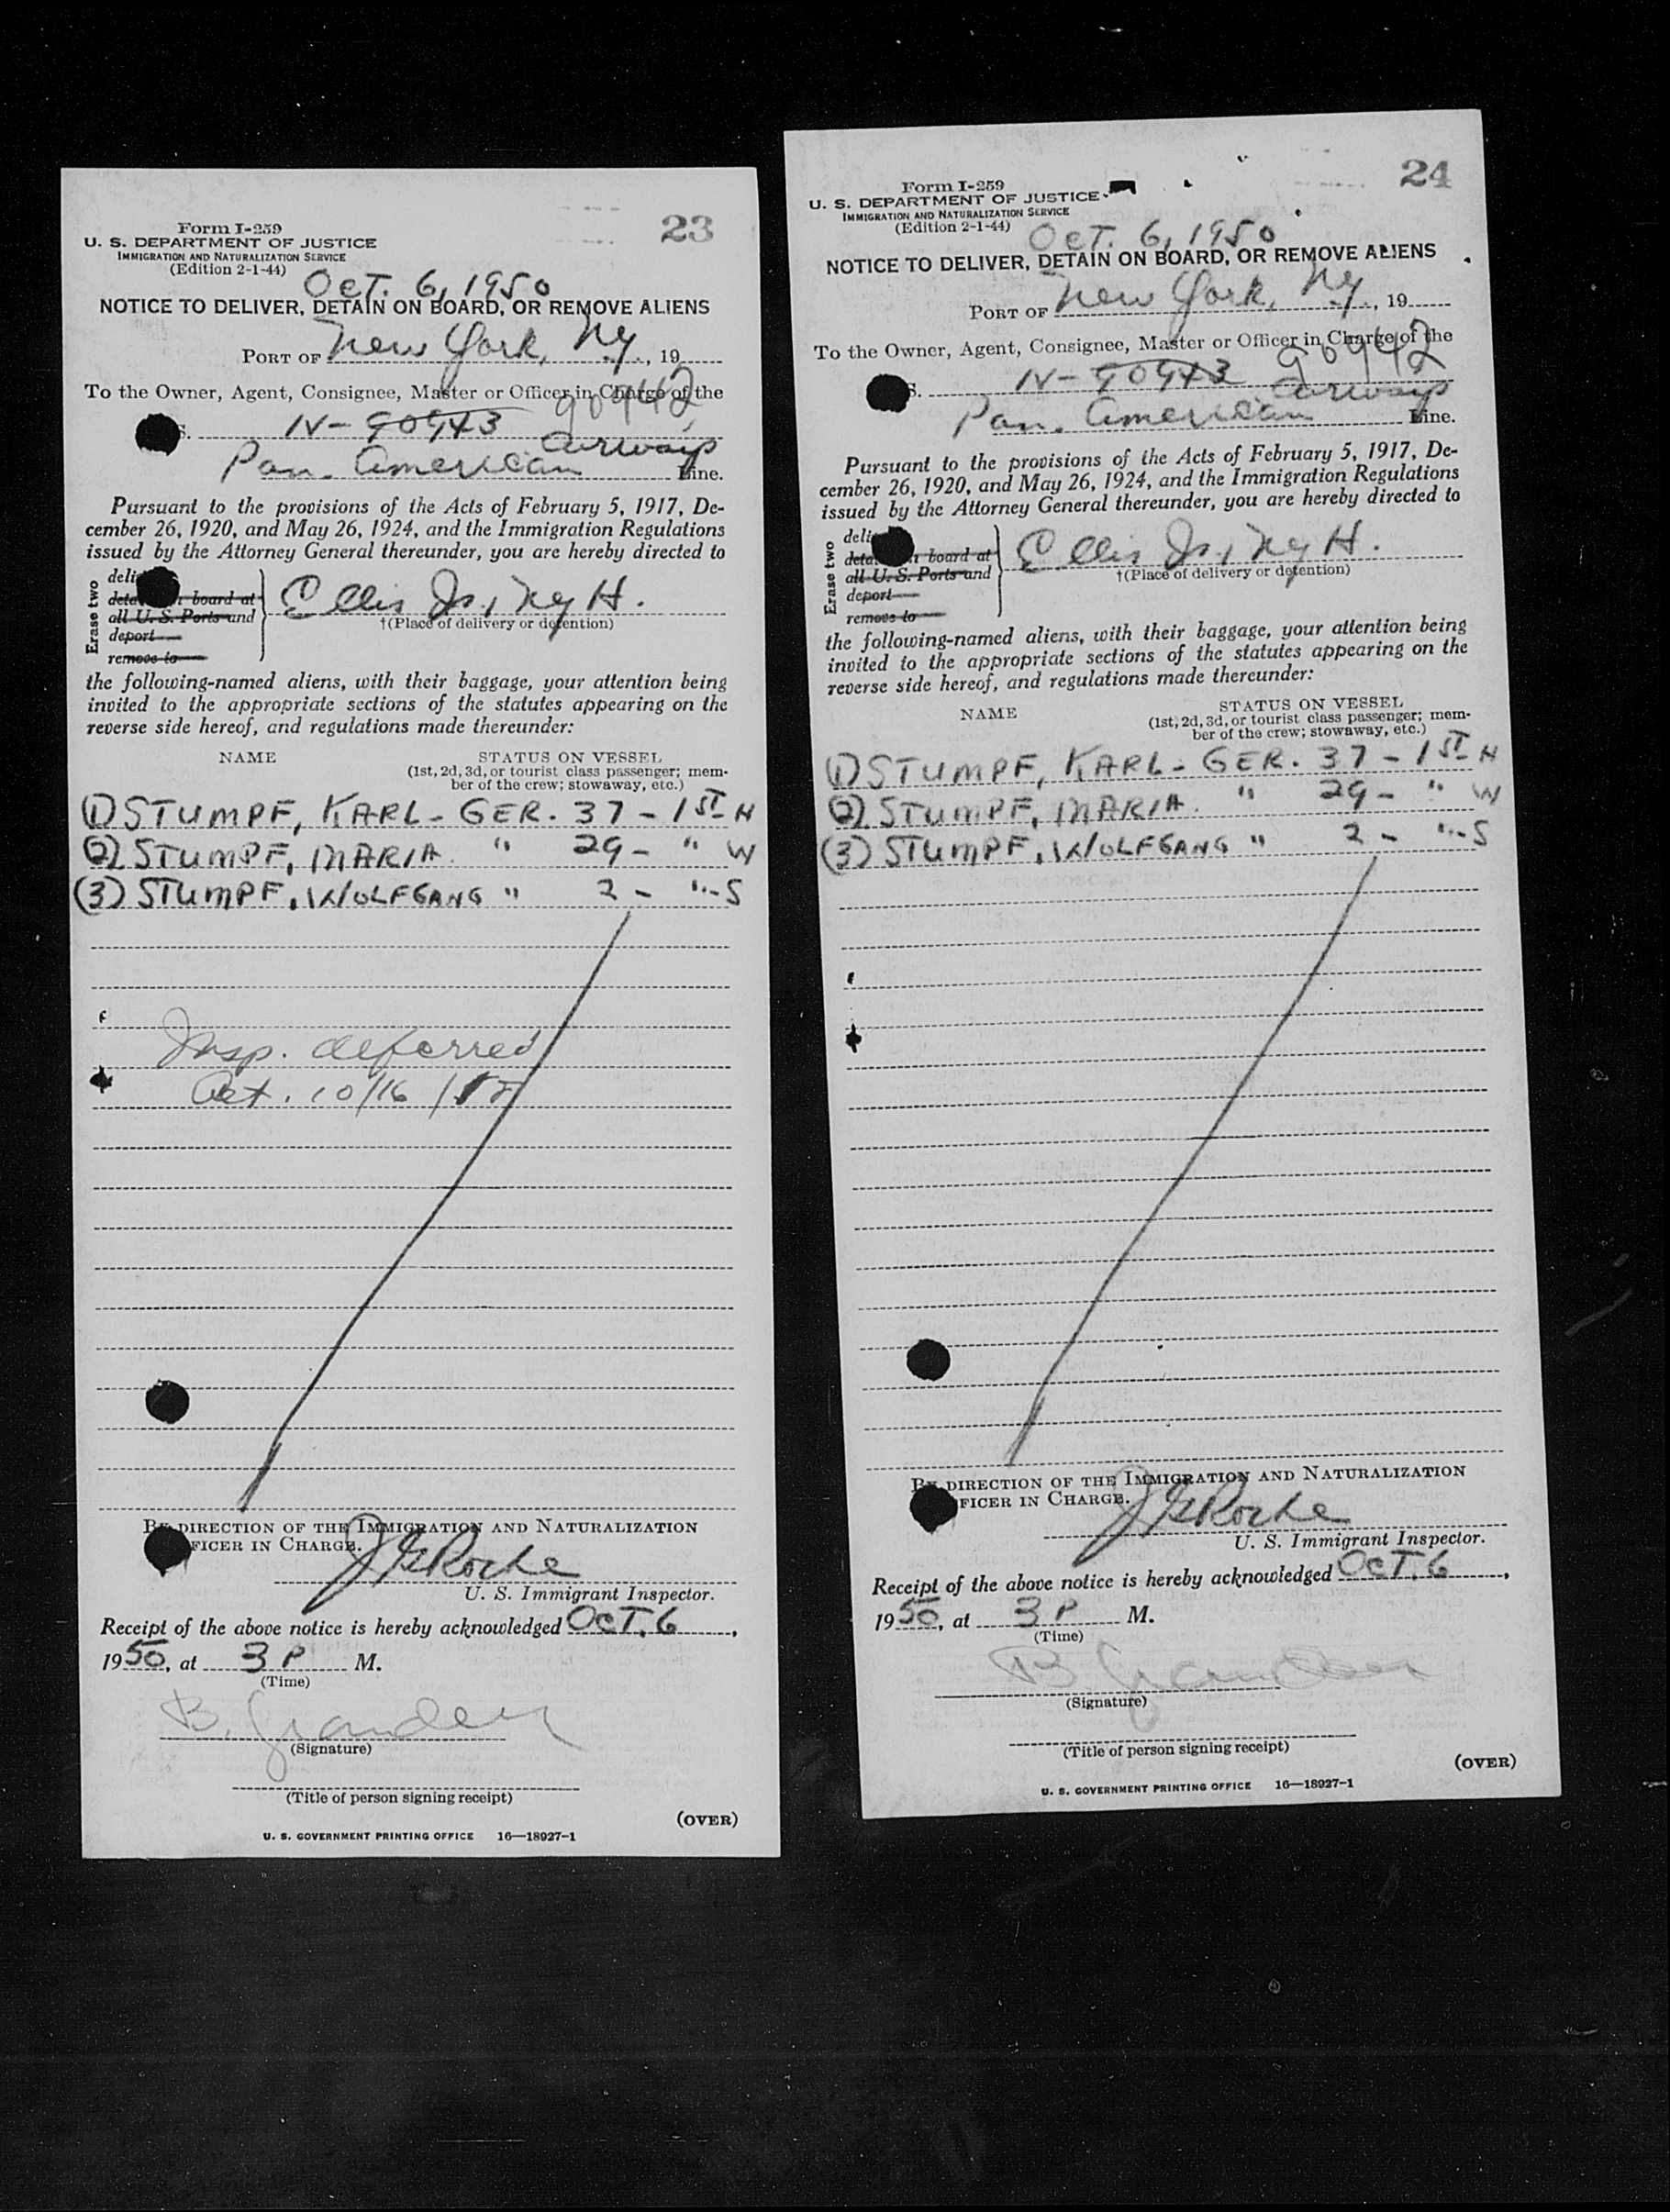 23
Form I-259
U. S. DEPARTMENT OF JUSTICE
IMMIGRATION AND NATURALIZATION SERVICE
(Edition 2-1-44)
OCT. 6, 1950
NOTICE TO DELIVER, DETAIN ON BOARD, OR REMOVE ALIENS
PORT OF New York, NY, 19
To the Owner, Agent, Consignee, Master or Officer in Charge of the
S. N-90943 90942
Pan. American Airways Line.
Pursuant to the provisions of the Acts of February 5, 1917, De-
cember 26, 1920, and May 26, 1924, and the Immigration Regulations
issued by the Attorney General thereunder, you are hereby directed to
Erase two
deli
deta board at
all U. S. Ports and
deport
remove to
Ellis Is, NYH.
†(Place of delivery or detention)
the following-named aliens, with their baggage, your attention being
invited to the appropriate sections of the statutes appearing on the
reverse side hereof, and regulations made thereunder:
NAME STATUS ON VESSEL
(1st, 2d, 3d, or tourist class passenger; mem-
ber of the crew; stowaway, etc.)
(1) STUMPF, KARL - GER. 37 - 1ST H
(2) STUMPF, MARIA. " 29 - " W
(3) STUMPF, WOLFGANG " 2 - " - S
Insp. deferred
10/16
BY DIRECTION OF THE IMMIGRATION AND NATURALIZATION
FICER IN CHARGE.
J G Roche
U. S. Immigrant Inspector.
Receipt of the above notice is hereby acknowledged OCT. 6,
1950, at 3 P M.
(Time)
B.
(Signature)
(Title of person signing receipt)
(OVER)
U. S. GOVERNMENT PRINTING OFFICE 16—18927-1
24
Form I-259
U. S. DEPARTMENT OF JUSTICE
IMMIGRATION AND NATURALIZATION SERVICE
(Edition 2-1-44)
OCT. 6, 1950
NOTICE TO DELIVER, DETAIN ON BOARD, OR REMOVE ALIENS
PORT OF New York, NY, 19
To the Owner, Agent, Consignee, Master or Officer in Charge of the
S. N-90943 90942
Pan. American Airways Line.
Pursuant to the provisions of the Acts of February 5, 1917, De-
cember 26, 1920, and May 26, 1924, and the Immigration Regulations
issued by the Attorney General thereunder, you are hereby directed to
Erase two
deli
deta board at
all U. S. Ports and
deport
remove to
Ellis Is, NYH.
†(Place of delivery or detention)
the following-named aliens, with their baggage, your attention being
invited to the appropriate sections of the statutes appearing on the
reverse side hereof, and regulations made thereunder:
NAME STATUS ON VESSEL
(1st, 2d, 3d, or tourist class passenger; mem-
ber of the crew; stowaway, etc.)
(1) STUMPF, KARL - GER. 37 - 1ST H
(2) STUMPF, MARIA. " 29 - " W
(3) STUMPF, WOLFGANG " 2 - " - S
BY DIRECTION OF THE IMMIGRATION AND NATURALIZATION
FICER IN CHARGE.
J G Roche
U. S. Immigrant Inspector.
Receipt of the above notice is hereby acknowledged OCT. 6,
1950, at 3 P M.
(Time)
B
(Signature)
(Title of person signing receipt)
(OVER)
U. S. GOVERNMENT PRINTING OFFICE 16—18927-1